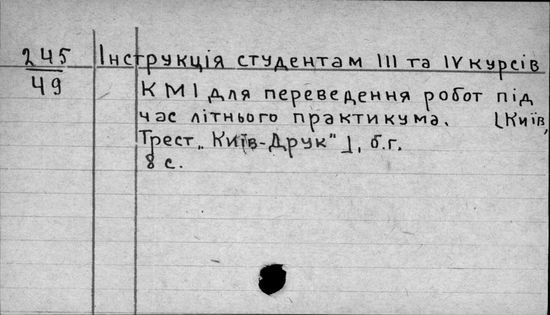 245
49
Інструкція студентам III та IV курсів
КМІ для переведення робот під
час літнього практикума. [Київ,
Трест „Київ-Друк"], б.г.
8 с.